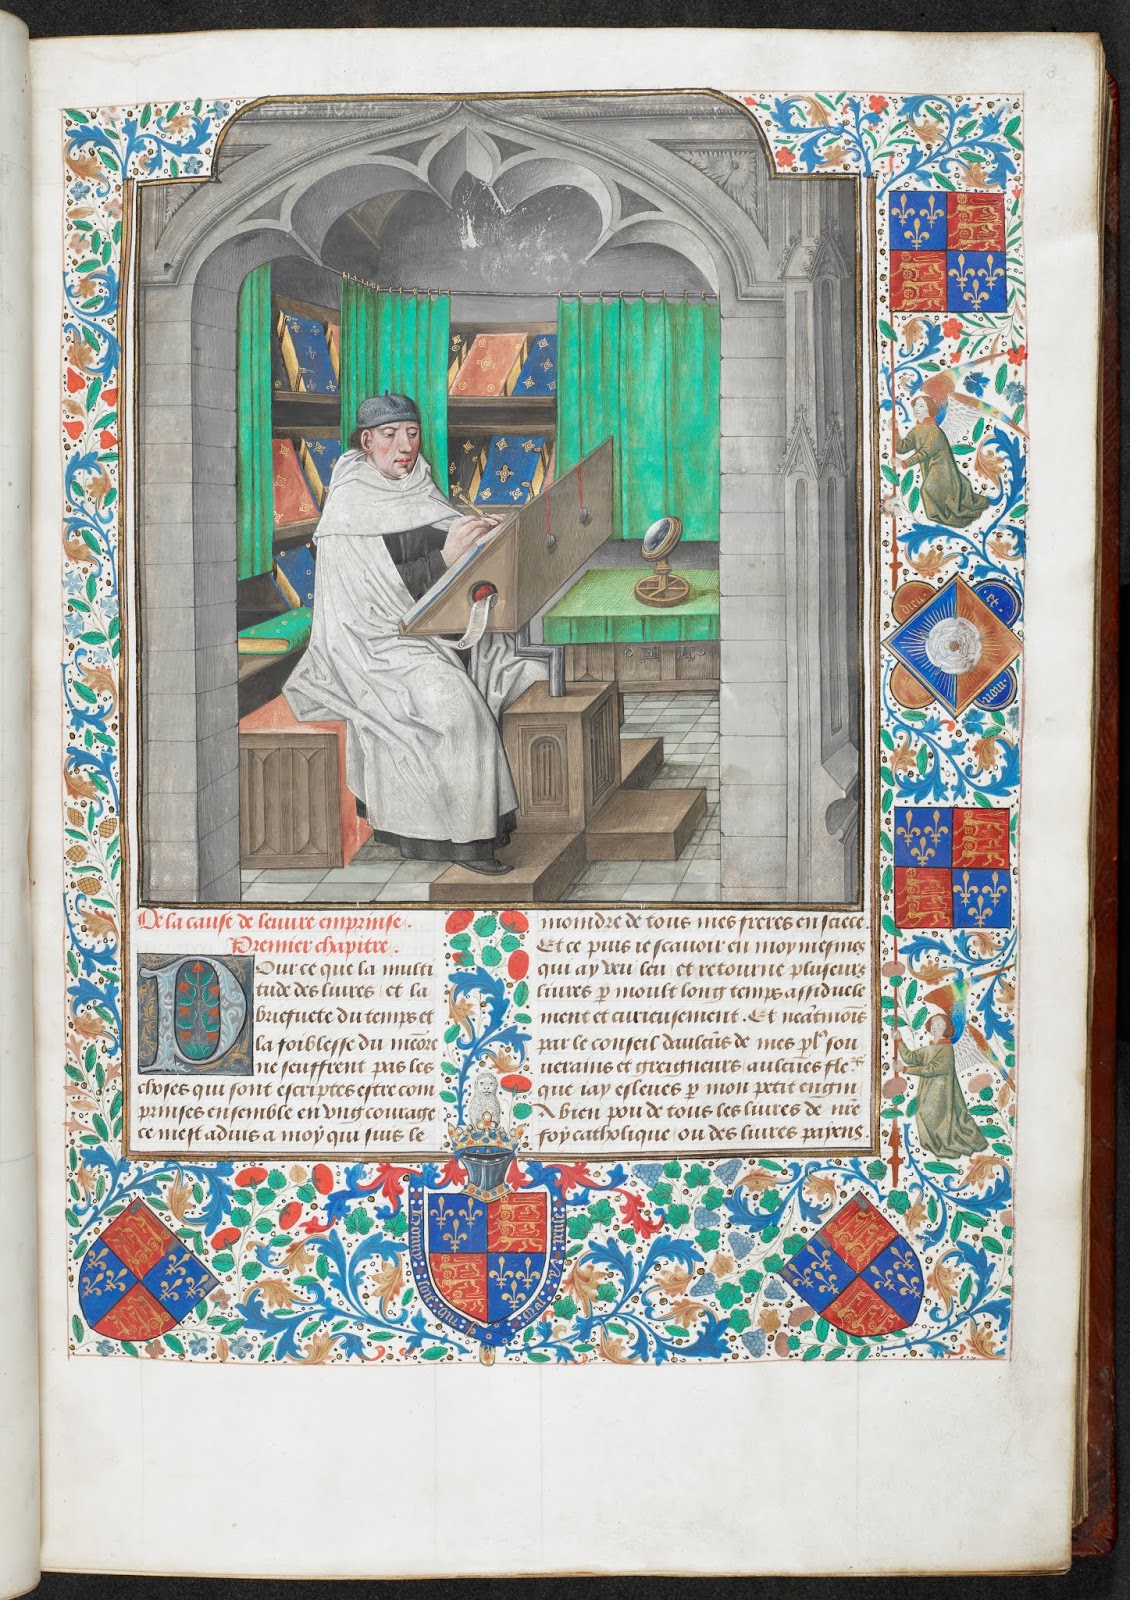 De la cause de leuure emprinse.
Premier chapitre.
Pour ce que la multi
tude des liures et la
briefuete du temps et
la foiblesse du memoire
ne seuffrent pas les
choses qui sont escriptes estre com
prinses ensemble en vng courage
ce mest aduis a moy qui suis le
moindre de tous mes freres en science.
Et ce puis ie scauoir en moy mesmes
qui ay veu leu et retourne plusieurs
liures p moult long temps assiduele
ment et curieusement. Et neatmois
par le conseil daulcuns de mes pl9 sou
uerains et greigneurs aulcunes fleurs
que iay esleues p mon petit engin
A bien pou de tous les liures de nre
foy catholique ou des liures payens
dieu et
mon
honny soit qui
mal y pense